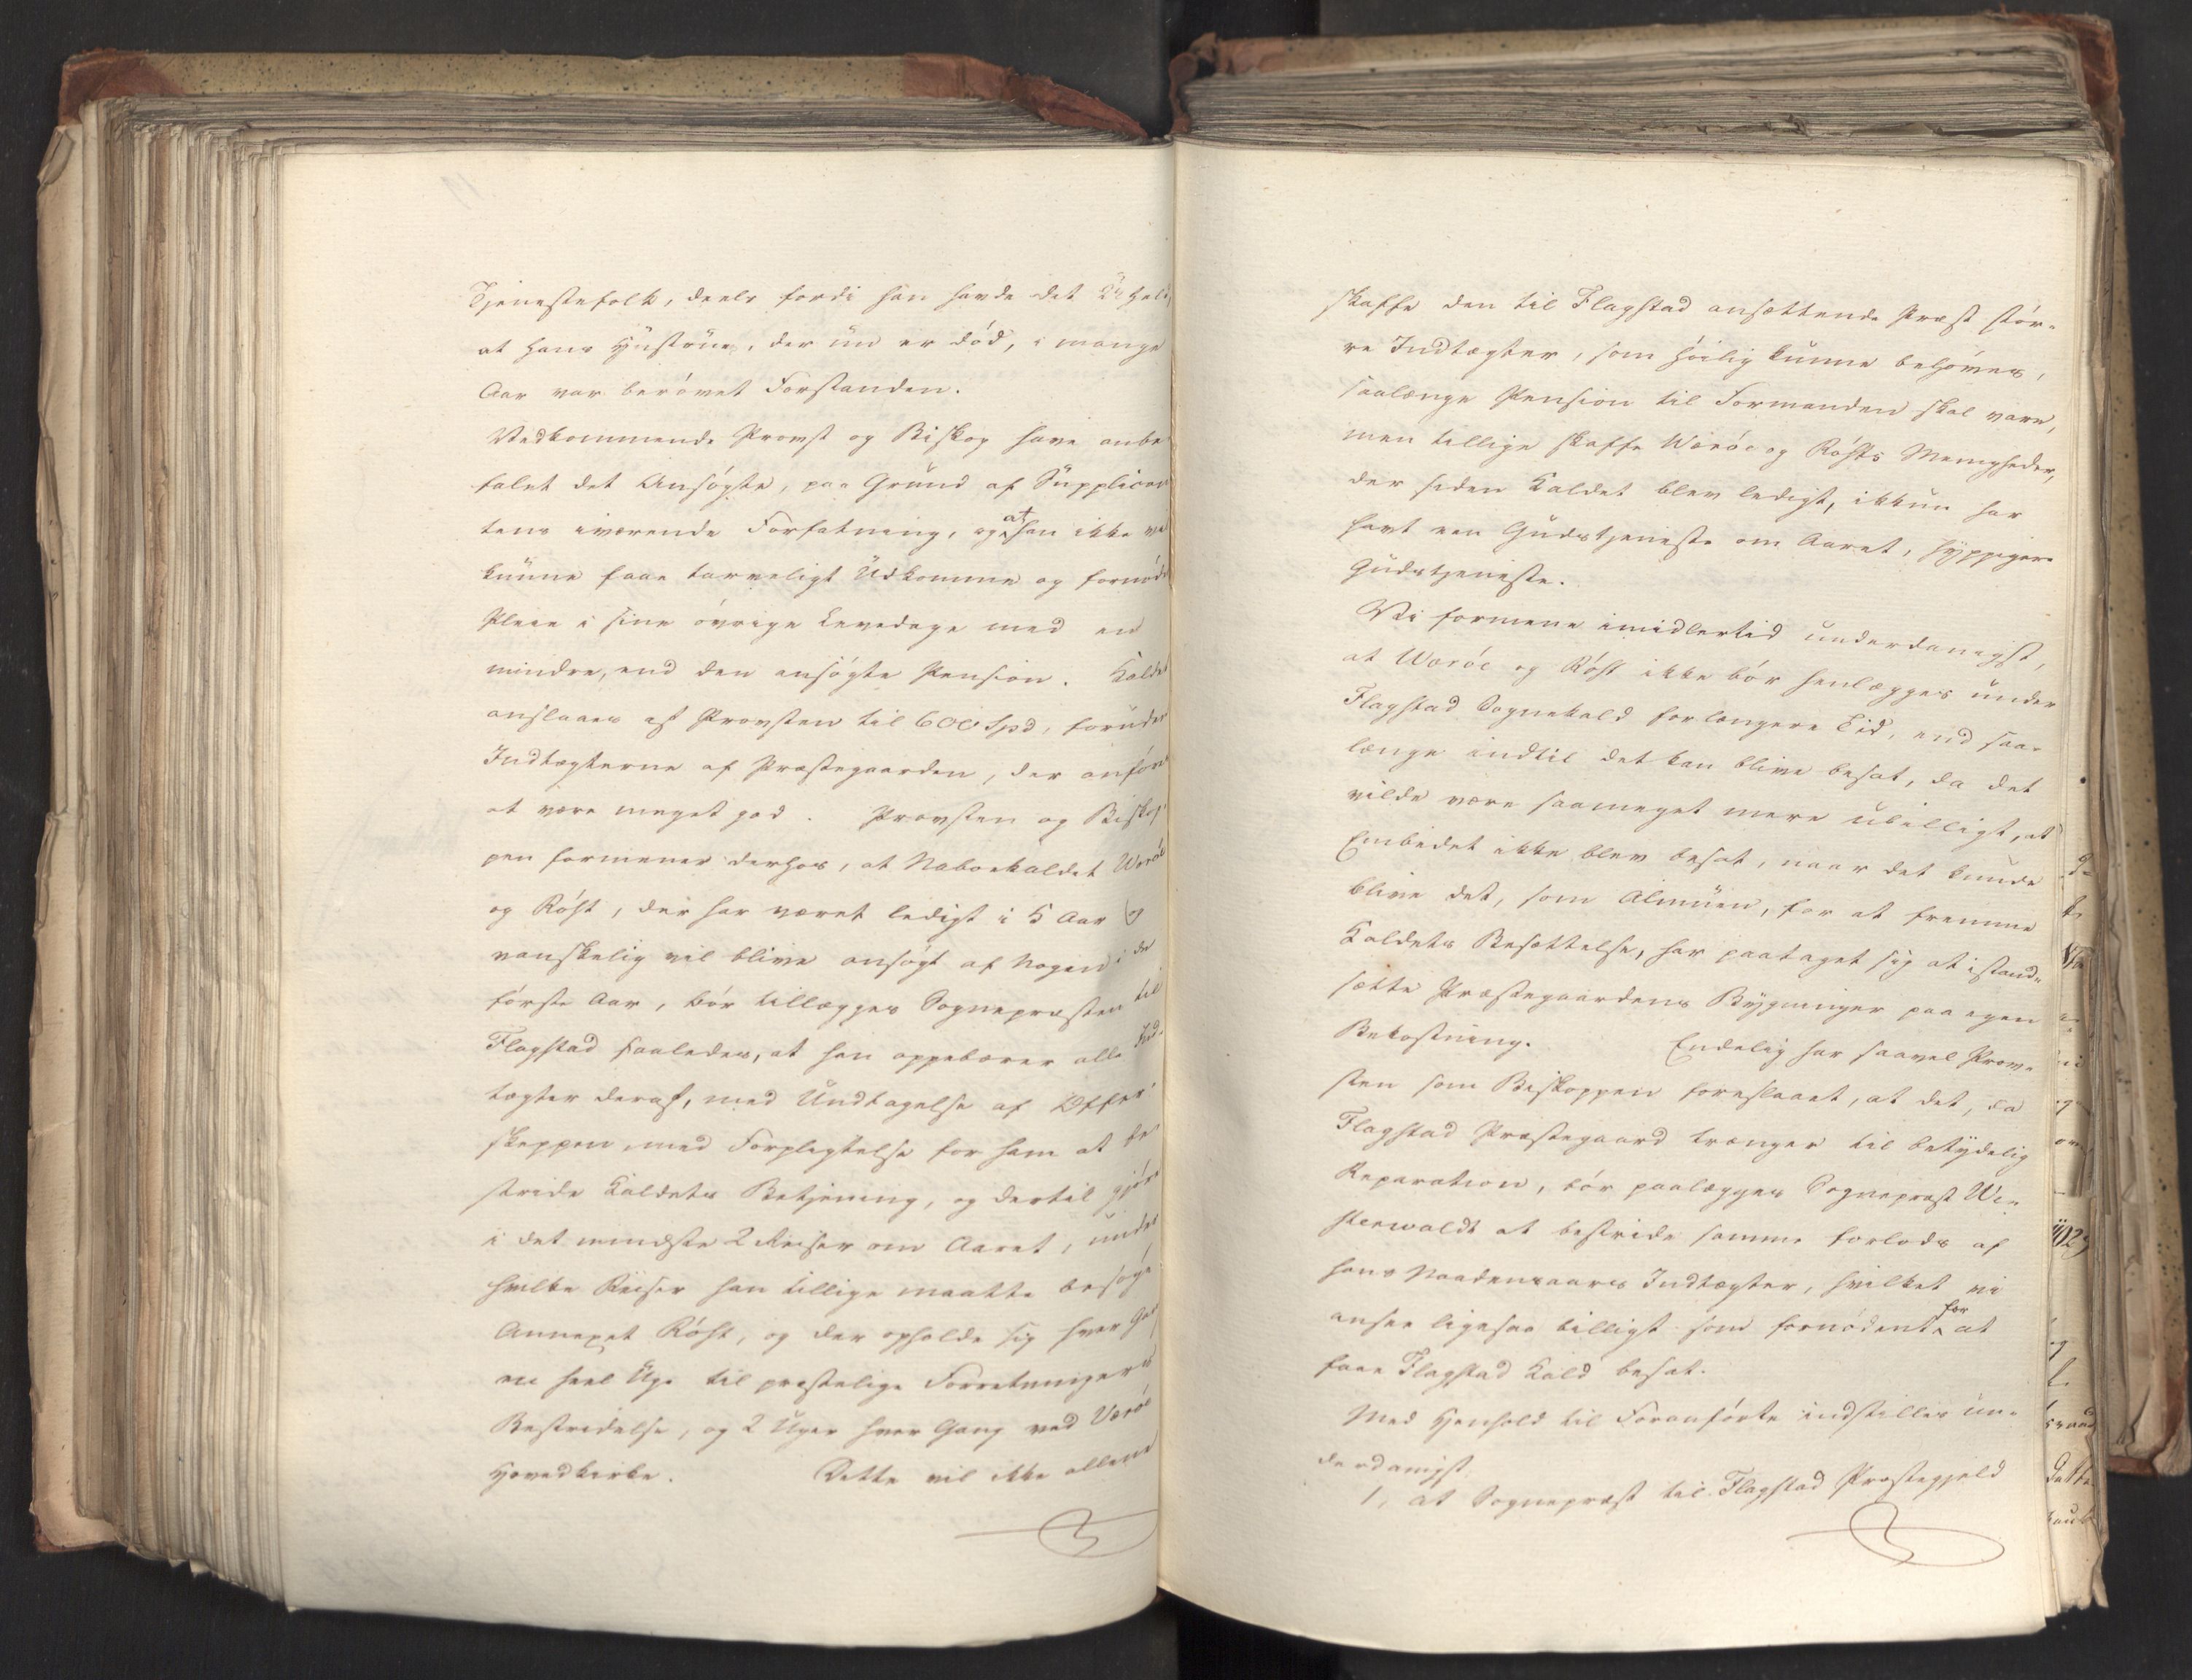 Tjenestefolk, deels fordi han havde det Uheld
at hans Hustrue, der nu er död, i mange
Aar var berövet Forstanden.
Vedkommende Provst og Biskop have anbe
falet det Ansögte, paa Grund af Supplican
tens iværende Forfatning, og at han ikke vil
kunne faae tarveligt Udkomme og fornöden
Pleie i sine övrige Levedage med en
mindre, end den ansögte Pension. Kaldet
anslaaes af Provsten til 600 Spd, foruden
Indtægterne af Præstegaarden, der anföres
at være meget god. Provsten og Biskop
pen formener derhos, at Naboekaldet Weröe
og Röst, der har været ledigt i 5 Aar og
vanskelig vil blive ansögt af Nogen i de
förste Aar, bör tillægges Sognepræsten til
Flagstad saaledes, at han oppebærer alle Ind-
tægter deraf, med Undtagelse af Offer
skeppen, med Forpligtelse for ham at be
stride Kaldets Betjening, og dertil gjöre
i det mindste 2 Reiser om Aaret, under
hvilke Reiser han tillige maatte besöge
Annexet Röst, og der opholde sig hver Gang
en heel Uge til præstelige Forretningers
Bestridelse, og 2 Uger hver Gang ved Veröe
Hovedkirke. Dette vil ikke allene
skaffe den til Flagstad ansættende Præst stör-
re Indtægter, som höilig kunne behöves,
saalænge Pension til Formanden skal vare,
men tillige skaffe Weröe og Rösts Menigheder,
der siden Kaldet blev ledigt, ikkun har
havt een Gudstjeneste om Aaret, hyppigere
Gudstjeneste.
Vi formene imidlertid underdanigst,
at Weröe og Röst ikke bör henlægges under
Flagstad Sognekald for længere Tid, end saa-
længe indtil det kan blive besat, da det
vilde være saameget mere ubilligt, at
Embedet ikke blev besat, naar det kunde
blive det, som Almuen, for at fremme
Kaldets Besættelse, har paataget sig at istand-
sætte Præstegaardens Bygninger paa egen
Bekostning. Endelig har saavel Prov-
sten som Biskoppen foreslaaet, at det, da
Flagstad Præstegaard trænger til betydelig
Reparation, bör paalægges Sognepræst We-
sterwaldt at bestride samme forlods af
hans Naadensaars Indtægter, hvilket vi
ansee ligesaa billigt som fornödent for at
faae Flagstad Kald besat.
Med Henhold til Foranförte indstilles un-
derdanigst
1, at Sognepræst til Flagstad Præstegjeld